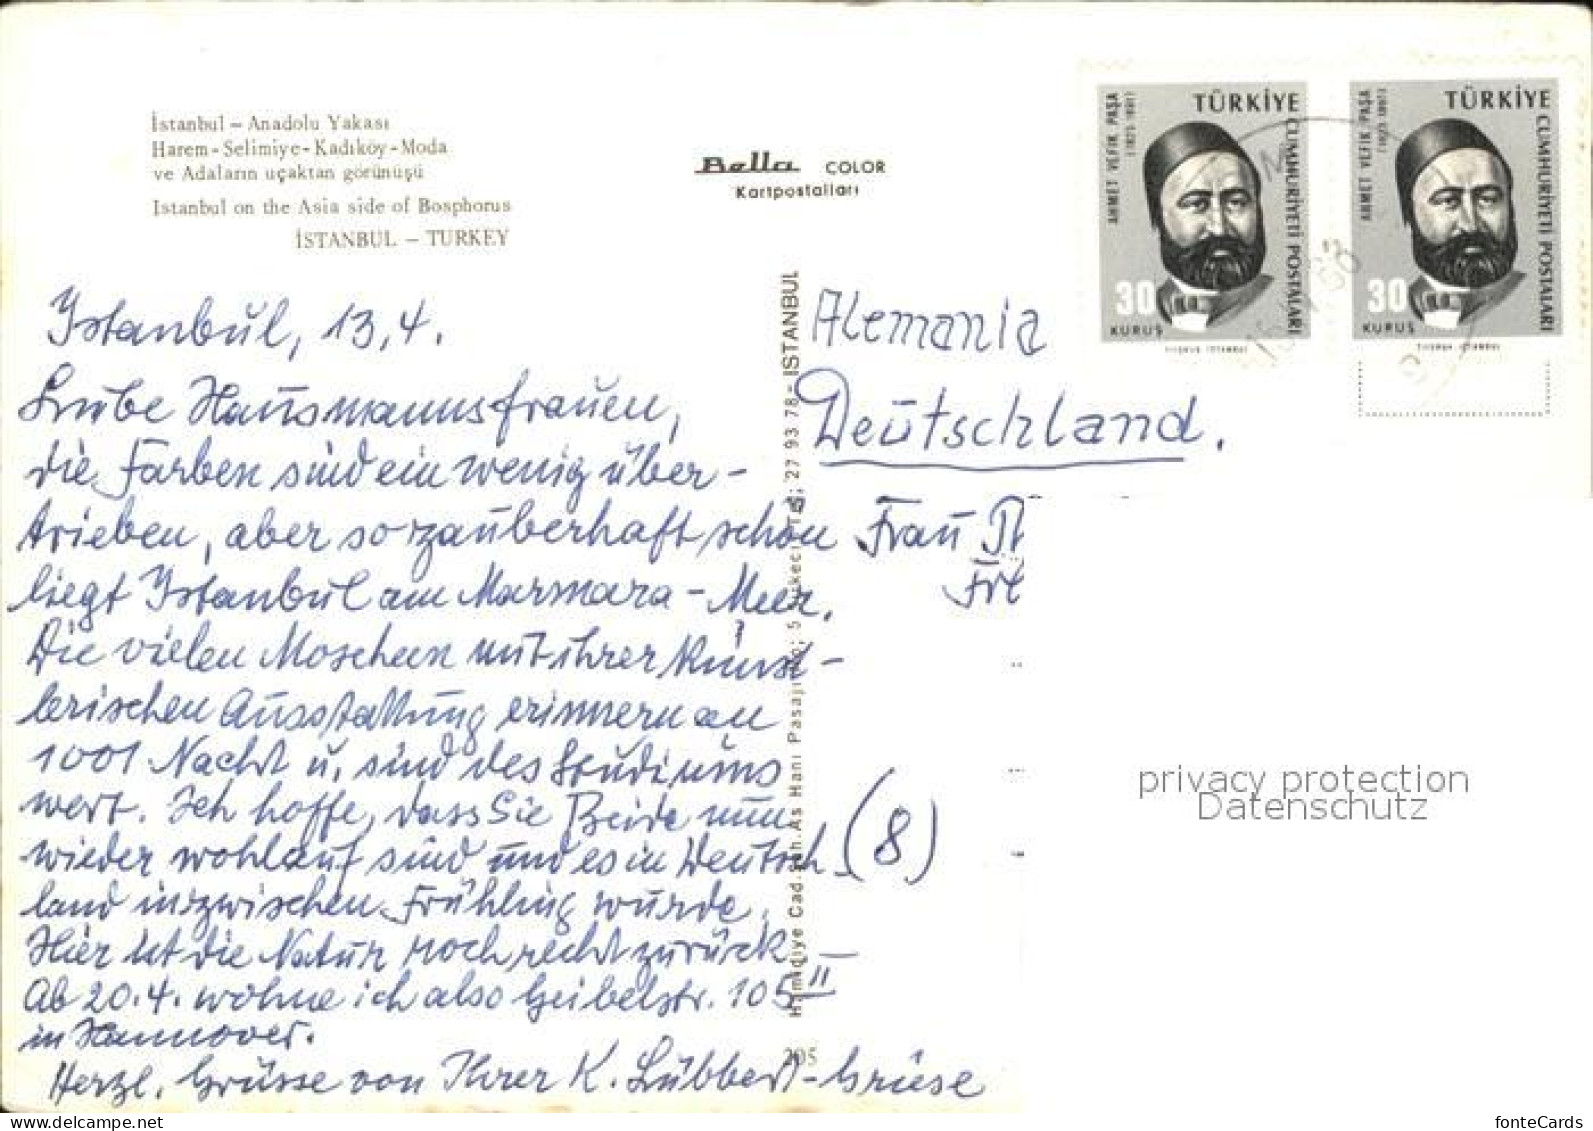 İstanbul – Anadolu Yakası
Harem - Selimiye - Kadıköy - Moda
ve Adaların uçaktan görünüşü
Istanbul on the Asia side of Bosphorus
İSTANBUL – TURKEY
Bella COLOR
Kartpostalları
TÜRKİYE
CUMHURİYETİ POSTALARI
AHMET VEFİK PAŞA
30
KURUŞ
TÜRKİYE
CUMHURİYETİ POSTALARI
AHMET VEFİK PAŞA
30
KURUŞ
Istanbul, 13,4.
Liebe Hausmannsfrauen,
die Farben sind ein wenig über-
trieben, aber so zauberhaft schön
liegt Istanbul am Marmara-Meer.
Die vielen Moscheen mit ihrer künst-
lerischen Ausstattung erinnern an
1001 Nacht u. sind des Studiums
wert. Ich hoffe, dass Sie Beide nun
wieder wohlauf sind und es in Deutsch-
land inzwischen Frühling wurde.
Hier ist die Natur noch recht zurück. –
Ab 20.4. wohne ich also Geibelstr. 105 II
in Hannover.
Herzl. Grüsse von Ihrer K. Lübbert-Griese
Hamidiye Cad. As Hanı Pasajı 27 93 78 - ISTANBUL
205
Alemania
Deutschland.
Frau
(8)
privacy protection
Datenschutz
fonteCards